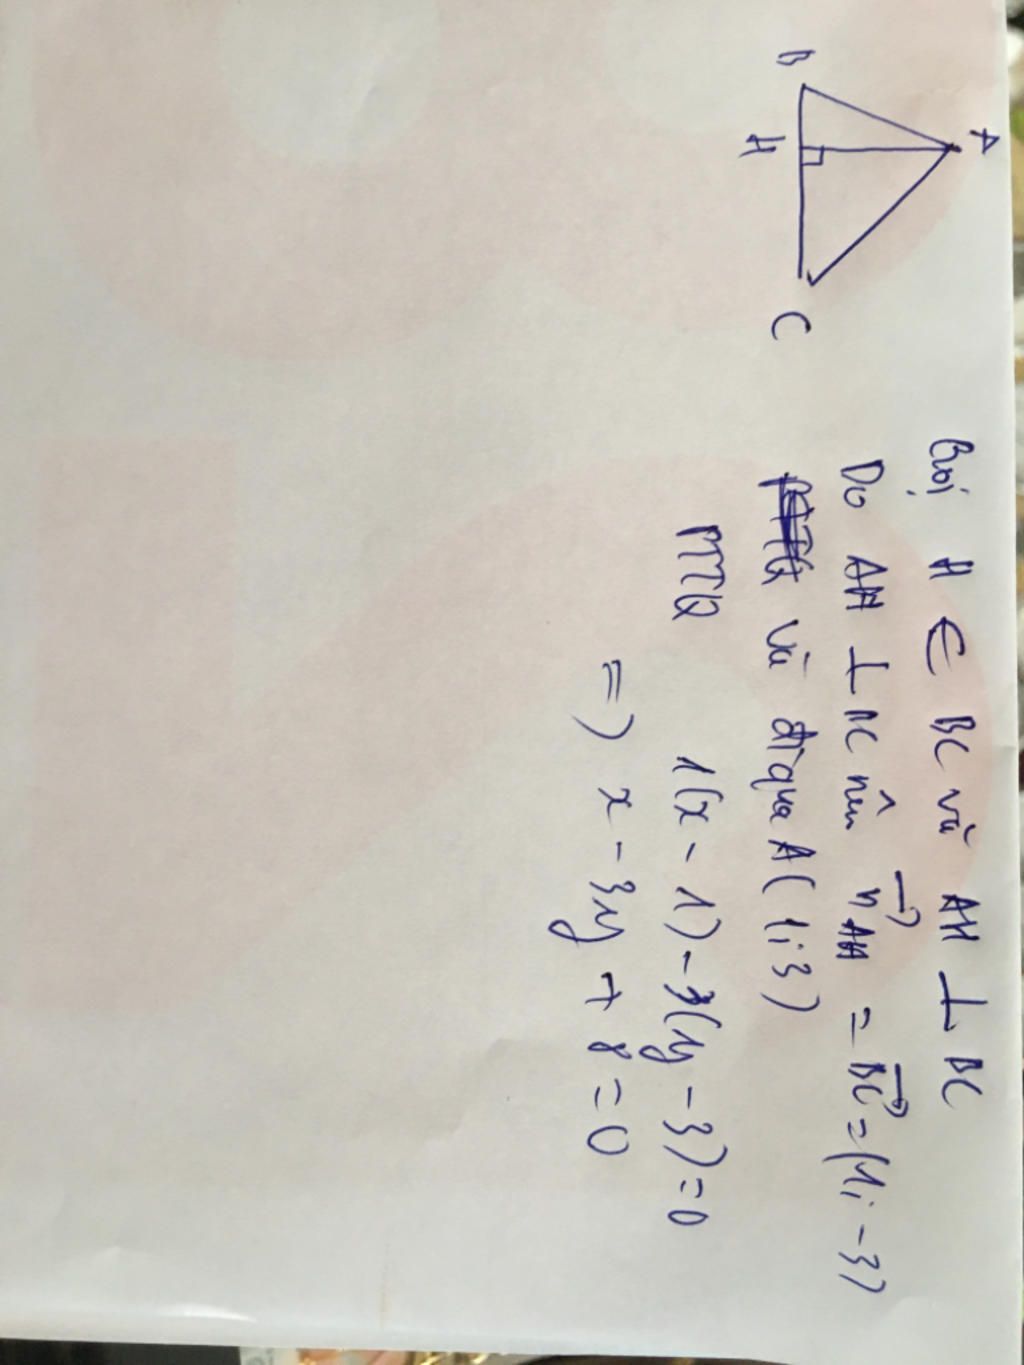 B
A
H
C
Gọi H ∈ BC và AH ⊥ BC
Do AH ⊥ BC nên n⃗AH = BC⃗ = (1; -3)
và đi qua A(1;3)
PTTQ 1(x - 1) - 3(y - 3) = 0
=) x - 3y + 8 = 0